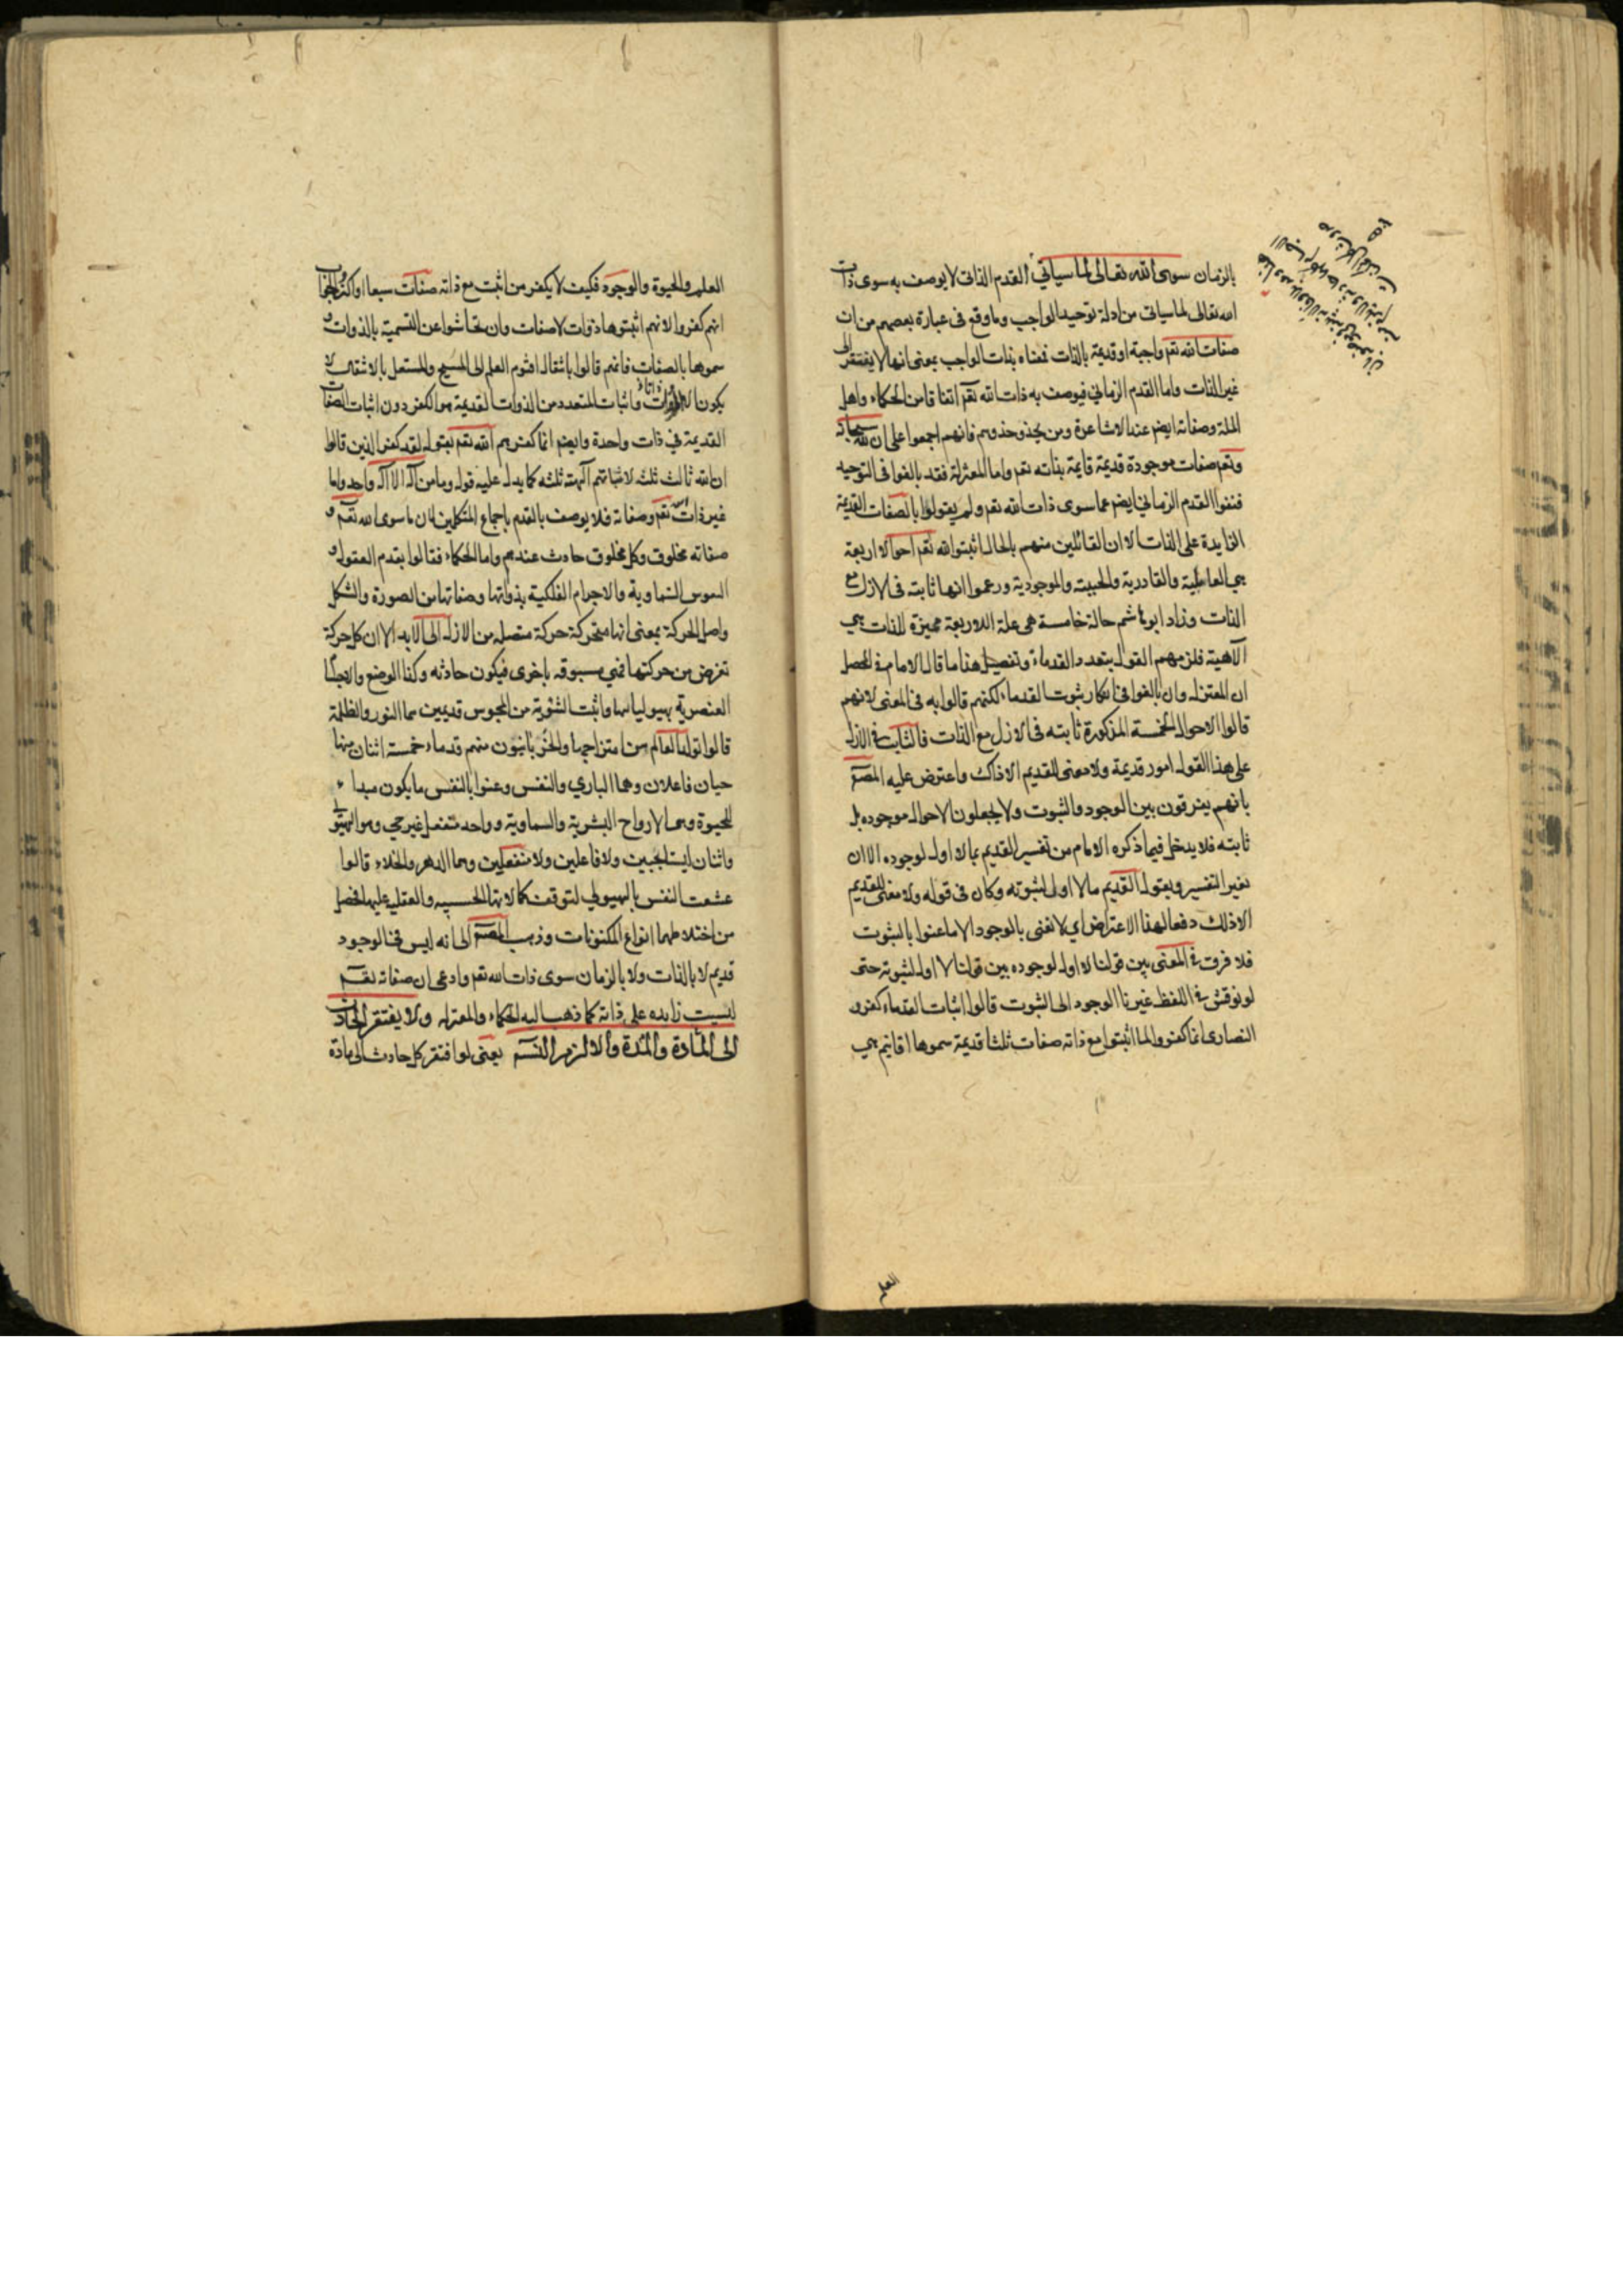 بالزمان سوى الله تعالى لما سياتى القدم الذاتى لا يوصف به سوى ذات
الله تعالى لما سياتى من ادلة توحيد الواجب وما وقع فى عبارة بعضهم من ان
صفات الله تعم واجبة او قديمة بالذات فمعناه بذات الواجب بمعنى انها لا يفتقر الى
غير الذات واما القدم الزماني فيوصف به ذات الله تعم اتفاقا من الحكماء واهل
الملة وصفاته ايضم عند الاشاعرة ومن يحذو حذوهم فانهم اجمعوا على ان لله سبحانه
وتعم صفات موجودة قديمة قايمة بذاته تعم واما المعتزلة فقد بالغوا فى التوحيد
فنفوا القدم الزماني ايضم عما سوى ذات الله تعم ولم يقولوا بالصفات القديمة
الزايدة على الذات الا ان القائلين منهم بالحال اثبتوا لله تعم احوالا اربعة
هي العالمية والقادرية والحيية والموجودية وزعموا انها ثابته فى الازل مع
الذات وزاد ابو هاشم حالة خامسة هى علة للاربعة مميزة للذات هي
الآلهية فلزمهم القول بتعدد القدماء وتفصيل هذا ما قال الامام فى المحصل
ان المعتزله وان بالغوا فى انكار ثبوت القدماء لكنهم قالوا به فى المعنى لانهم
قالوا الاحوال الخمسة المذكورة ثابته فى الازل مع الذات فالثابت فى الازل
على هذا القول امور قديمة ولا معنى للقديم الا ذاك واعترض عليه المصم
بانهم يفرقون بين الوجود والثبوت ولا يجعلون الاحوال موجوده بل
ثابته فلا يدخل فيما ذكره الامام من تفسير القديم بما لا اول لوجوده الا ان
يغير التفسير ويقول القديم ما لا اول لثبوته وكان فى قوله ولا معنى للقديم
الا ذلك دفعا لهذا الاعتراض اي لا نعنى بالوجود الا ما عنوا بالثبوت
فلا فرق فى المعنى بين قولنا لا اول لوجوده بين قولنا لا اول لثبوته حتى
لو نوقش فى اللفظ غيرنا الوجود الى الثبوت قالوا اثبات القدماء كفر و
النصارى انما كفروا لما اثبتوا مع ذاته صفات ثلثا قديمة سموها اقانيم هي
العلم
العلم والحيوة والوجود فكيف لا يكفر من اثبت مع ذاته صفات سبعا او اكثر والجواب
انهم كفروا لانهم اثبتوها ذوات لا صفات وان تحاشوا عن التسمية بالذوات و
سموها بالصفات فانهم قالوا بانتقال اقنوم العلم الى المسيح والمستقل بالانتقال لا
يكون الا ذاتا واثبات المتعدد من الذوات القديمة هو الكفر دون اثبات الصفات
القديمة في ذات واحدة وايضم انما كفرهم الله تعم بقوله لقد كفر الذين قالوا
ان الله ثالث ثلثه لاثباتهم آلهة ثلثه كما يدل عليه قوله وما من آله الا آله واحد واما
غير ذات الله تعم وصفاته فلا يوصف بالقدم باجماع المتكلمين لان ما سوى الله تعم و
صفاته مخلوق وكل مخلوق حادث عندهم واما الحكماء فقالوا بقدم العقول و
النفوس السماوية والاجرام الفلكية بذواتها وصفاتها من الصورة والشكل
واصل الحركة بمعنى انها متحركة حركة متصله من الازل الى الابد الا ان كل حركة
تفرض من حركتها فهي مسبوقه باخرى فيكون حادثه وكذا الوضع والاجسام
العنصرية بهيولياتها واثبت الثنوية من المجوس قديمين هما النور والظلمة
قالوا تولد العالم من امتزاجهما والحرنانيون منهم قدماء خمسة اثنان منها
حيان فاعلان وهما الباري والنفس وعنوا بالنفس ما يكون مبداء
للحيوة وهى الارواح البشرية والسماوية وواحد منفعل غير حي وهو الهيولى
واثنان ليسا بحيين ولا فاعلين ولا منفعلين وهما الدهر والخلاء قالوا
عشقت النفس بالهيولي لتوقف كمالاتها الحسيه والعقليه عليها فحصل
من اختلاطهما انواع المكنونات وذهب المصم الى انه ليس فى الوجود
قديم لا بالذات ولا بالزمان سوى ذات الله تعم وادعى ان صفاته تعم
ليست زايده على ذاته كما ذهب اليه الحكماء والمعتزله ولا يفتقر الحادث
الى المادة والمدة والا لزم التسم يعنى لو افتقر كل حادث الى مادة